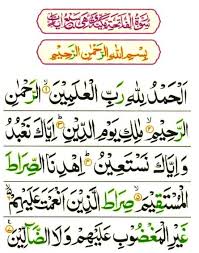 سُوْرَةُ الْفَاتِحَةِ مَكِّيَّةٌ وَّهِيَ سَبْعُ اٰيَاتٍ
بِسْمِ اللّٰهِ الرَّحْمٰنِ الرَّحِيْمِ
اَلْحَمْدُ لِلّٰهِ رَبِّ الْعٰلَمِيْنَ ۱ الرَّحْمٰنِ
الرَّحِيْمِ ۲ مٰلِكِ يَوْمِ الدِّيْنِ ۳ اِيَّاكَ نَعْبُدُ
وَاِيَّاكَ نَسْتَعِيْنُ ۴ اِهْدِنَا الصِّرَاطَ
الْمُسْتَقِيْمَ ۵ صِرَاطَ الَّذِيْنَ اَنْعَمْتَ عَلَيْهِمْ ۶
غَيْرِ الْمَغْضُوْبِ عَلَيْهِمْ وَلَا الضَّآلِّيْنَ ۷